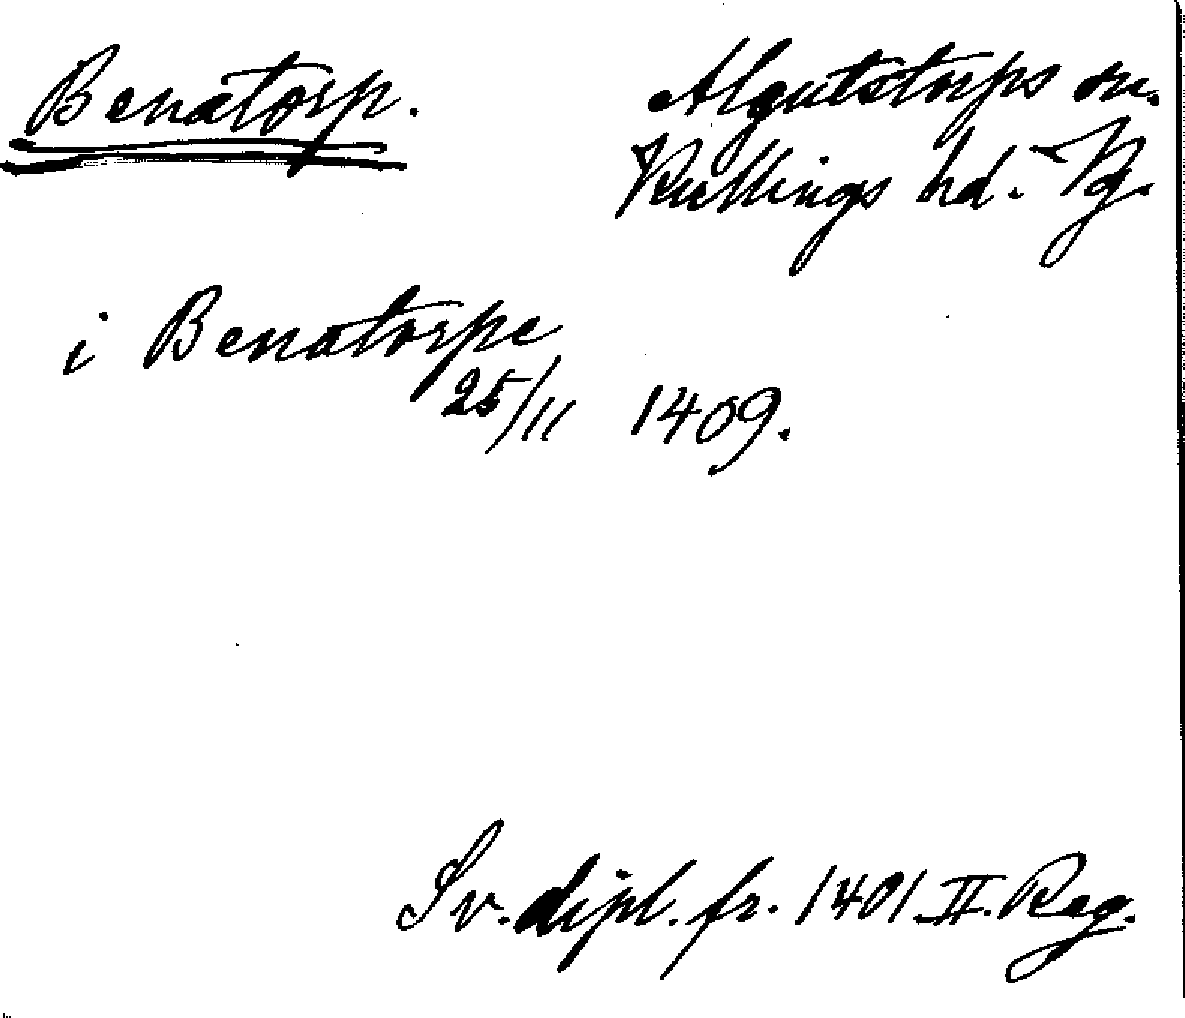 Benatorp.
Algutstorps sn.
Kullings hd. Vg.
i Benatorpe
25/11 1409.
Sv. dipl. fr. 1401 II. Reg.